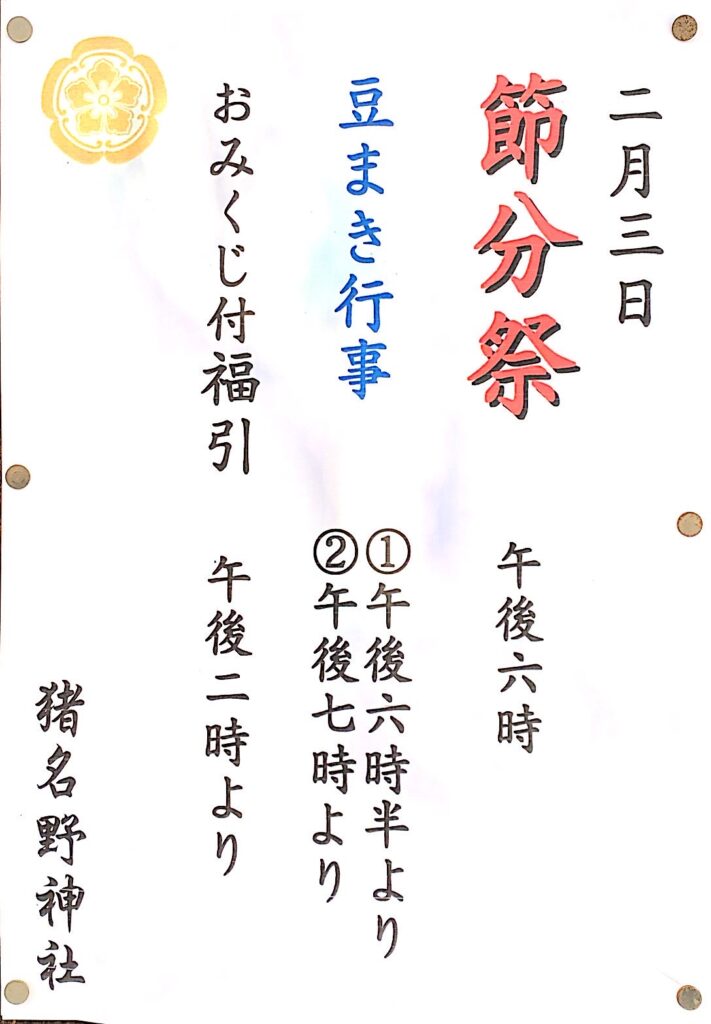 二月三日
節分祭
午後六時
豆まき行事
①午後六時半より
②午後七時より
おみくじ付福引
午後二時より
猪名野神社